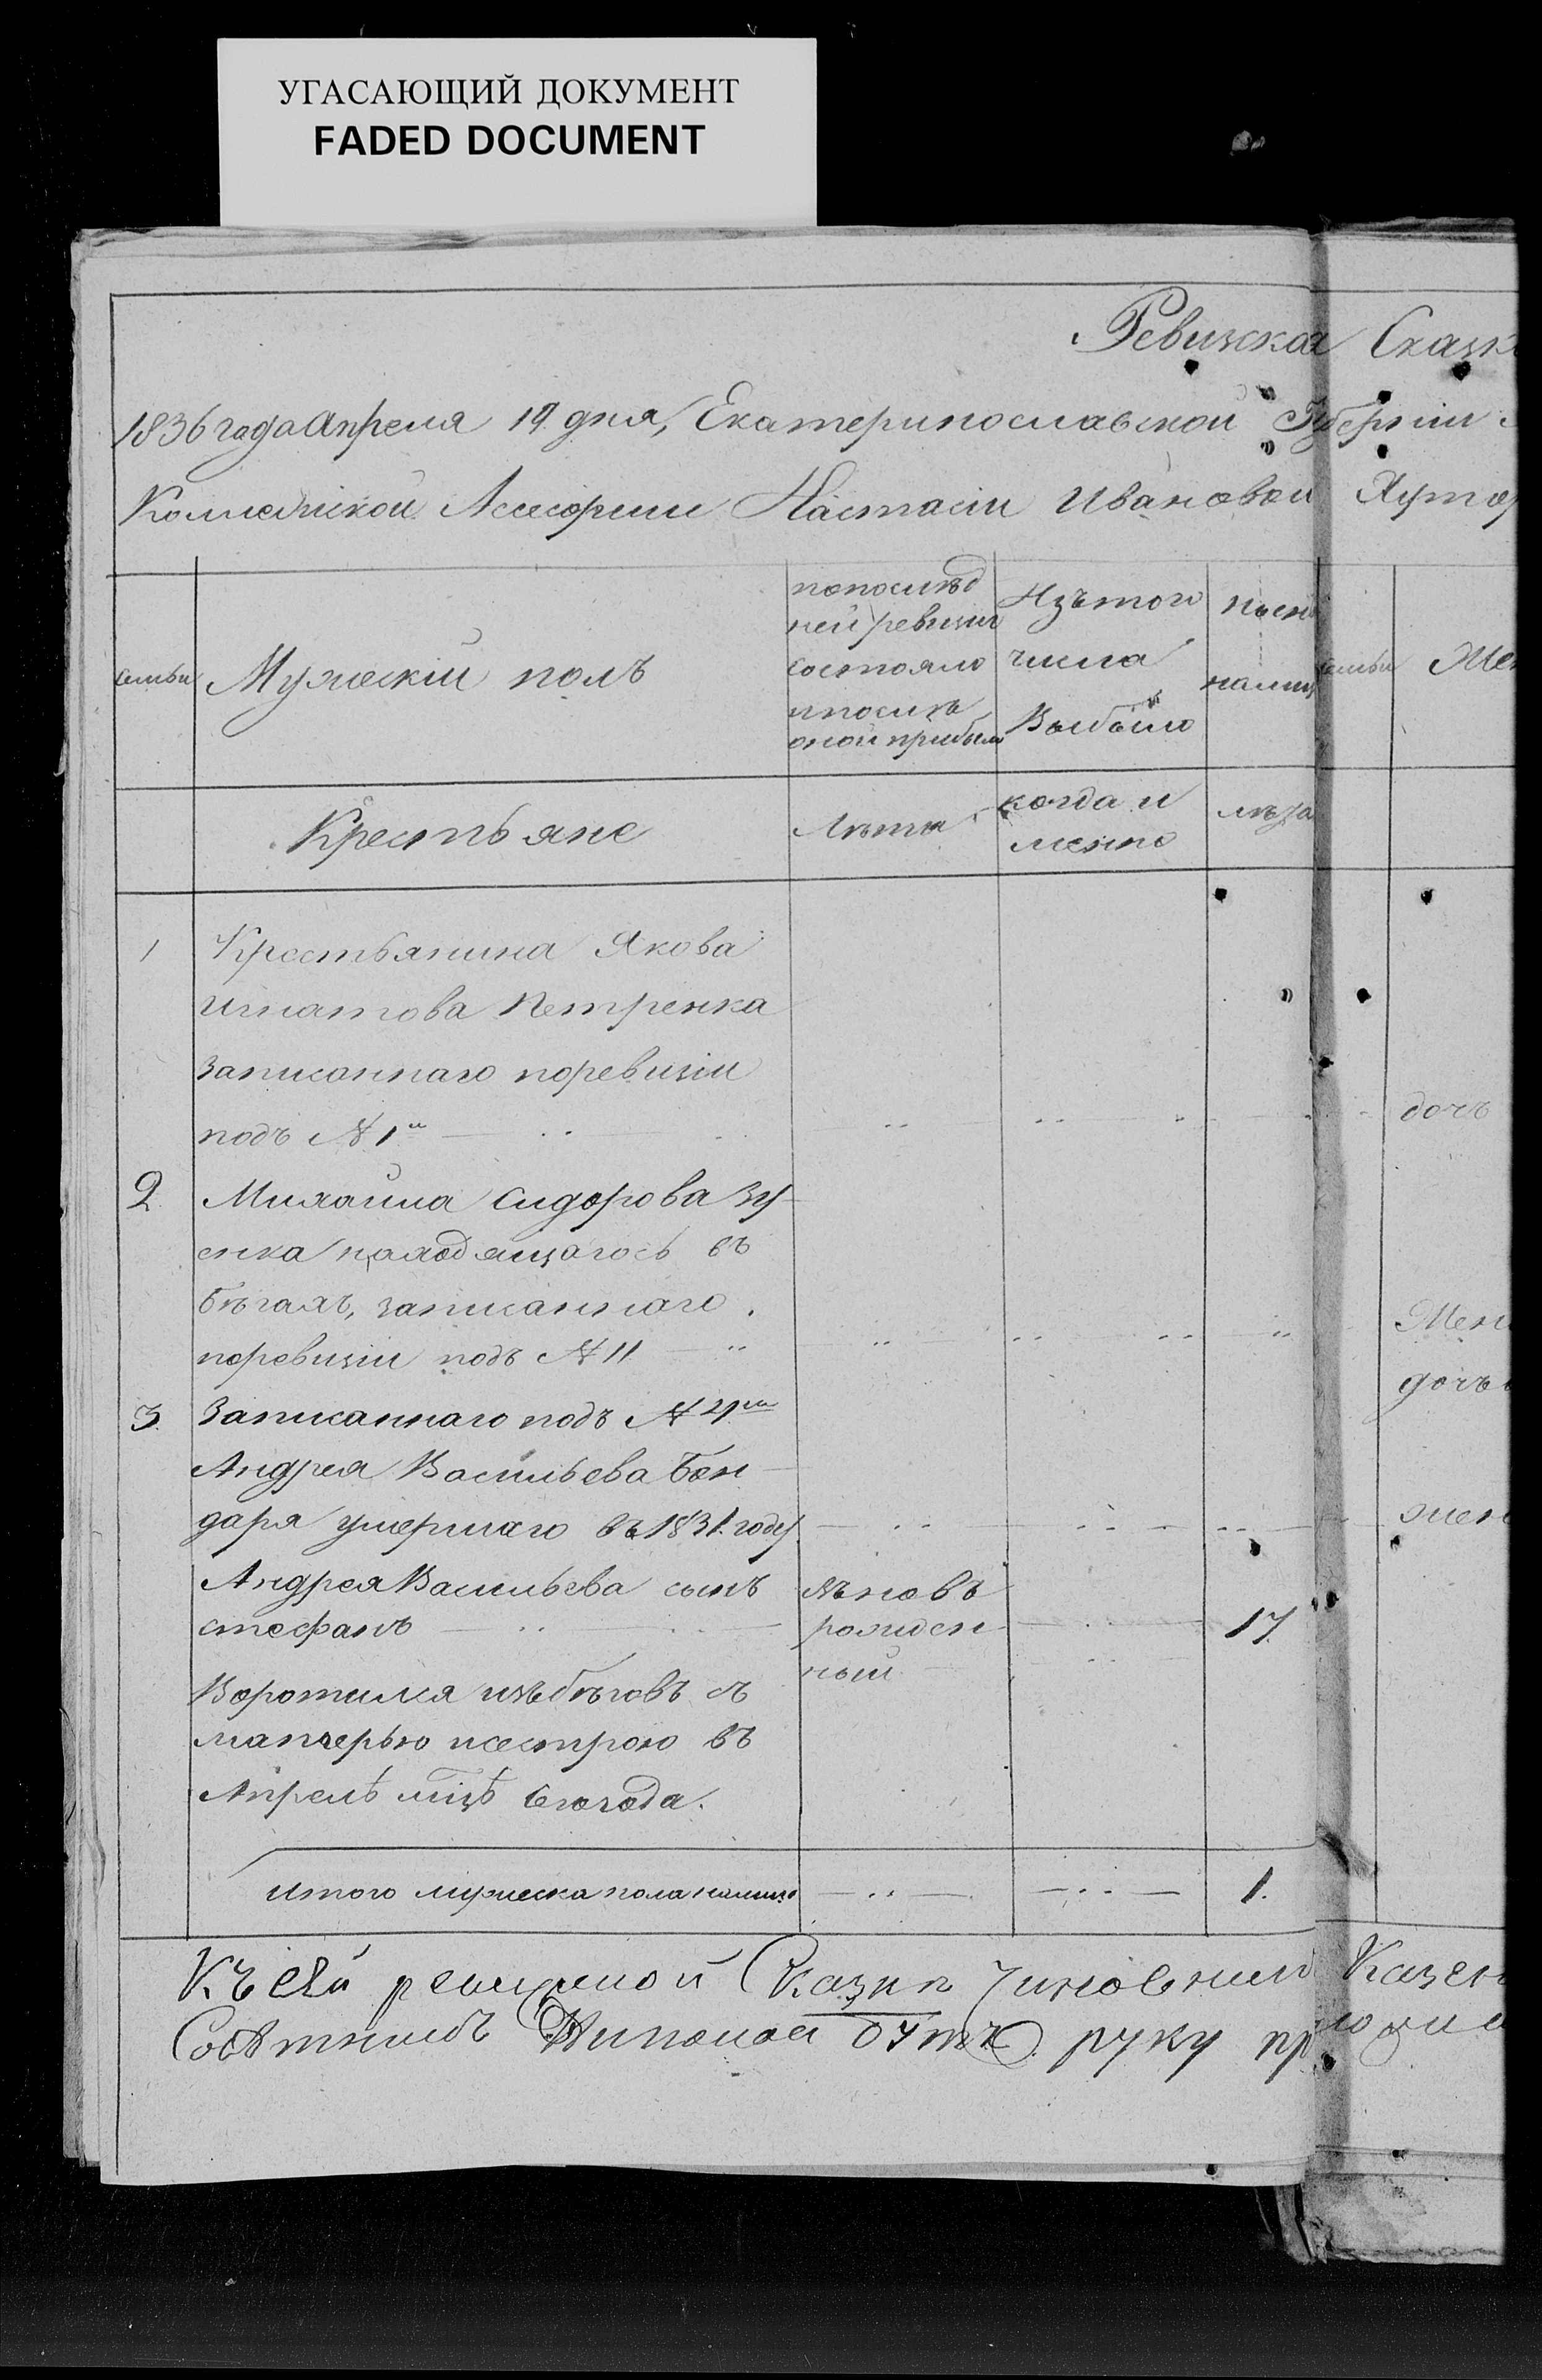 УГАСАЮЩИЙ ДОКУМЕНТ
FADED DOCUMENT
Ревизская Сказк
1836 года Апреля 19 дня, Екатеринославской Губерніи
Коллежской Асесорши Настасіи Ивановой Хутор
семьи
Мужескій полъ
попослѣд
ней ревизіи
состояло
ипослѣ
оной прибыло
Изътого
числа
Выбыло
ныне
налиц
семьи
Жен
Крестьяне
Лѣта
когда и
менно
лѣта
1 Крестьянина Якова
Игнатова Петренка
записаннаго поревизіи
подъ №1м
дочъ
2 Михайла Сидорова Зу
енка находящагось въ
бѣгахъ, записаннаго
поревизіи подъ № 11
Жен
дочъ
3. Записаннаго подъ № 4м
Андрея Васильева Бон
даря умершаго въ 1831. году
жен
Андрея Васильева сынъ
стефанъ
вновъ
рожден
ный
17.
Воротился изъбѣговъ съ
матчерью исестрою въ
Апрелѣ мцѣ сегогода.
Итого мужеска пола налицо 1.
Къ сей ревизской Сказкѣ Казен
руку приложил